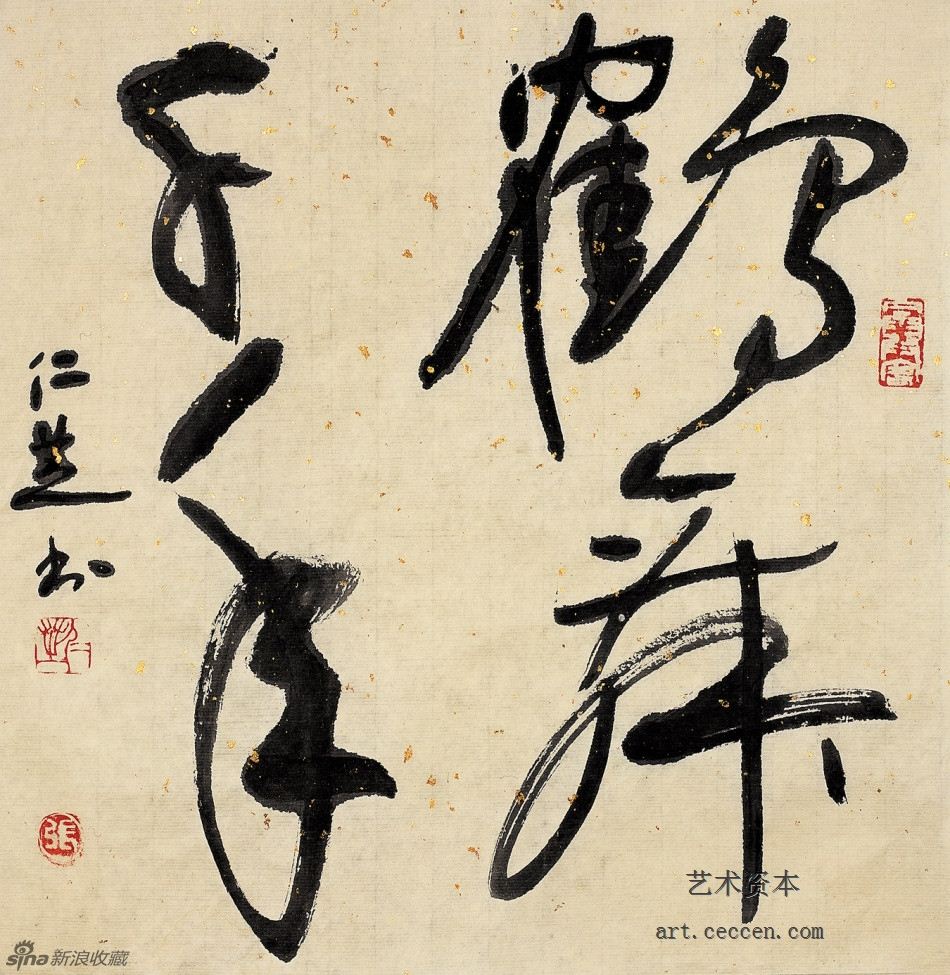 鶴舞
千年
仁芝书
張
艺术资本
art.ceccen.com
sina新浪收藏